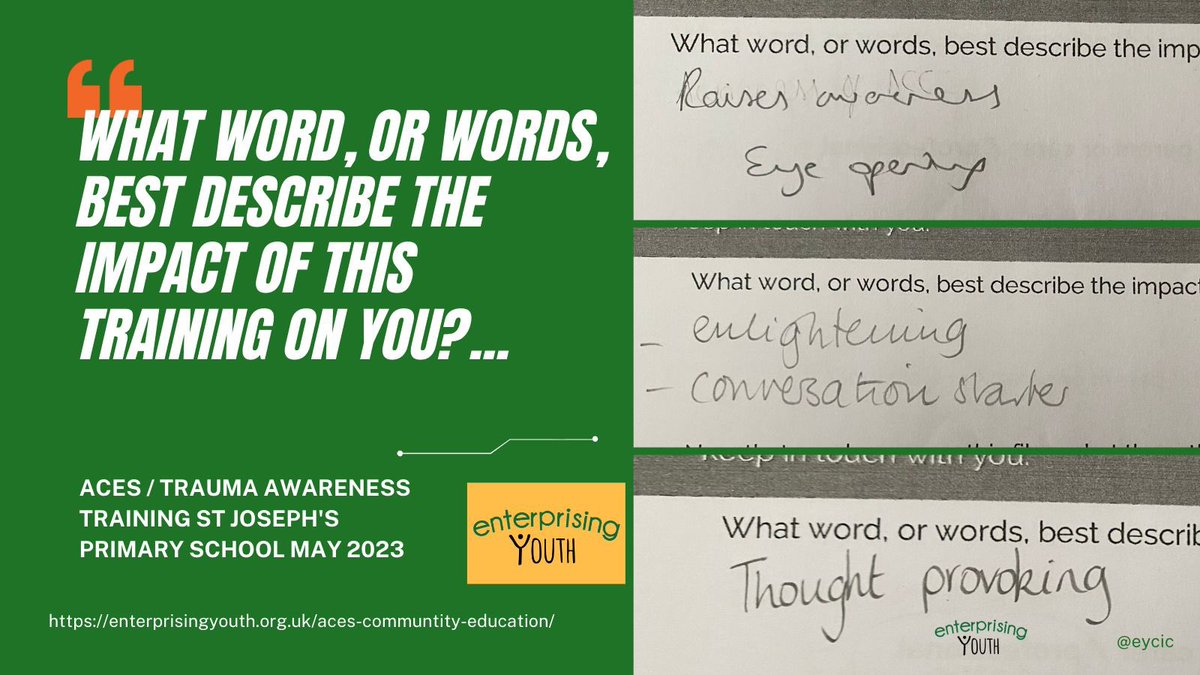 WHAT WORD, OR WORDS,
BEST DESCRIBE THE
IMPACT OF THIS
TRAINING ON YOU?...
ACES / TRAUMA AWARENESS
TRAINING ST JOSEPH'S
PRIMARY SCHOOL MAY 2023
enterprising
YOUTH
https://enterprisingyouth.org.uk/aces-communtity-education/
What word, or words, best describe the imp
Raises awareness
Eye opening
keep in touch with you.
What word, or words, best describe the impact
- enlightening
- conversation starter
keep in touch with you.
What word, or words, best describ
Thought provoking
enterprising
YOUTH
@eycic